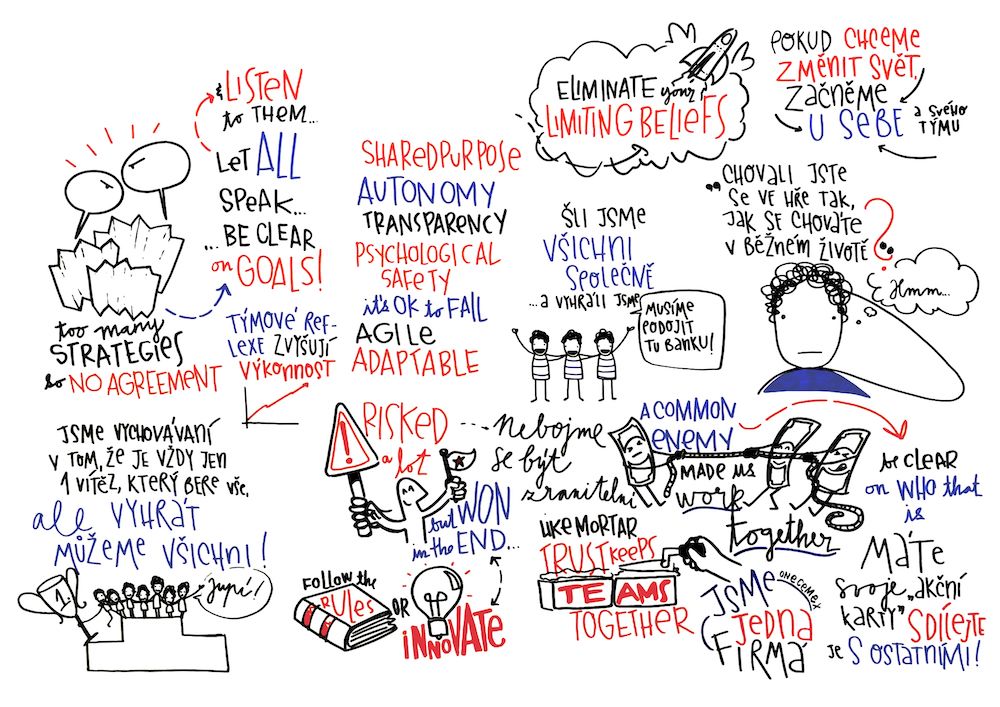 & LISTEN
to THEM...
LET ALL
SPEAK...
...BE CLEAR
on GOALS!
too many
STRATEGIES
so NO AGREEMENT
TÝMOVÉ REF-
LEXE ZVYŠUJÍ
VÝKONNOST
SHARED PURPOSE
AUTONOMY
TRANSPARENCY
PSYCHOLOGICAL
SAFETY
it's OK to FAIL
AGILE
ADAPTABLE
ELIMINATE your
LIMITING BELIEFS
POKUD CHCEME
ZMĚNIT SVĚT,
ZAČNĚME
U SEBE
A SVÉHO
TÝMU
ŠLI JSME
VŠICHNI
SPOLEČNĚ
...A VYHRÁLI JSME
MUSÍME
PODOJIT
TU BANKU!
"CHOVALI JSTE
SE VE HŘE TAK,
JAK SE CHOVÁTE
V BĚŽNÉM ŽIVOTĚ?"
Hmm...
JSME VYCHOVÁVANÍ
V TOM, ŽE JE VŽDY JEN
1 VÍTĚZ, KTERÝ BERE VŠE,
ale VYHRÁT
MŮŽEME VŠICHNI!
1.
Jupí!
RISKED
a lot
but WON
in the END...
Nebojme
se být
zranitelní
FOLLOW the
RULES
OR
INNOVATE
A COMMON
ENEMY
MADE us
work
together
be CLEAR
on WHO that
is
LIKE MORTAR
TRUST KEEPS
TEAMS
TOGETHER
JSME
ONE COME X
JEDNA
FIRMA
MÁTE
svoje „akční
karty"
SDÍLEJTE
je S OSTATNÍMI!